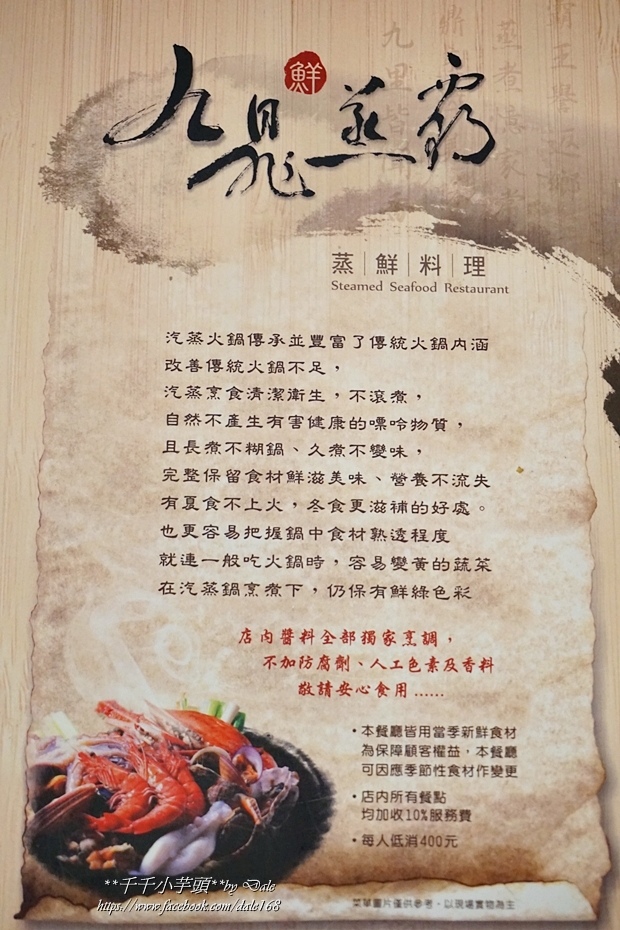 鮮
九鼎蒸霸
蒸｜鮮｜料｜理
Steamed Seafood Restaurant
汽蒸火鍋傳承並豐富了傳統火鍋內涵
改善傳統火鍋不足，
汽蒸烹食清潔衛生，不滾煮，
自然不產生有害健康的嘌呤物質，
且長煮不糊鍋、久煮不變味，
完整保留食材鮮滋美味、營養不流失
有夏食不上火，冬食更滋補的好處。
也更容易把握鍋中食材熟透程度
就連一般吃火鍋時，容易變黃的蔬菜
在汽蒸鍋烹煮下，仍保有鮮綠色彩
店內醬料全部獨家烹調，
不加防腐劑、人工色素及香料
敬請安心食用......
•本餐廳皆用當季新鮮食材
為保障顧客權益，本餐廳
可因應季節性食材作變更
•店內所有餐點
均加收10%服務費
•每人低消400元
**千千小芋頭**by Dale
https://www.facebook.com/dale168
菜單圖片僅供參考，以現場實物為主